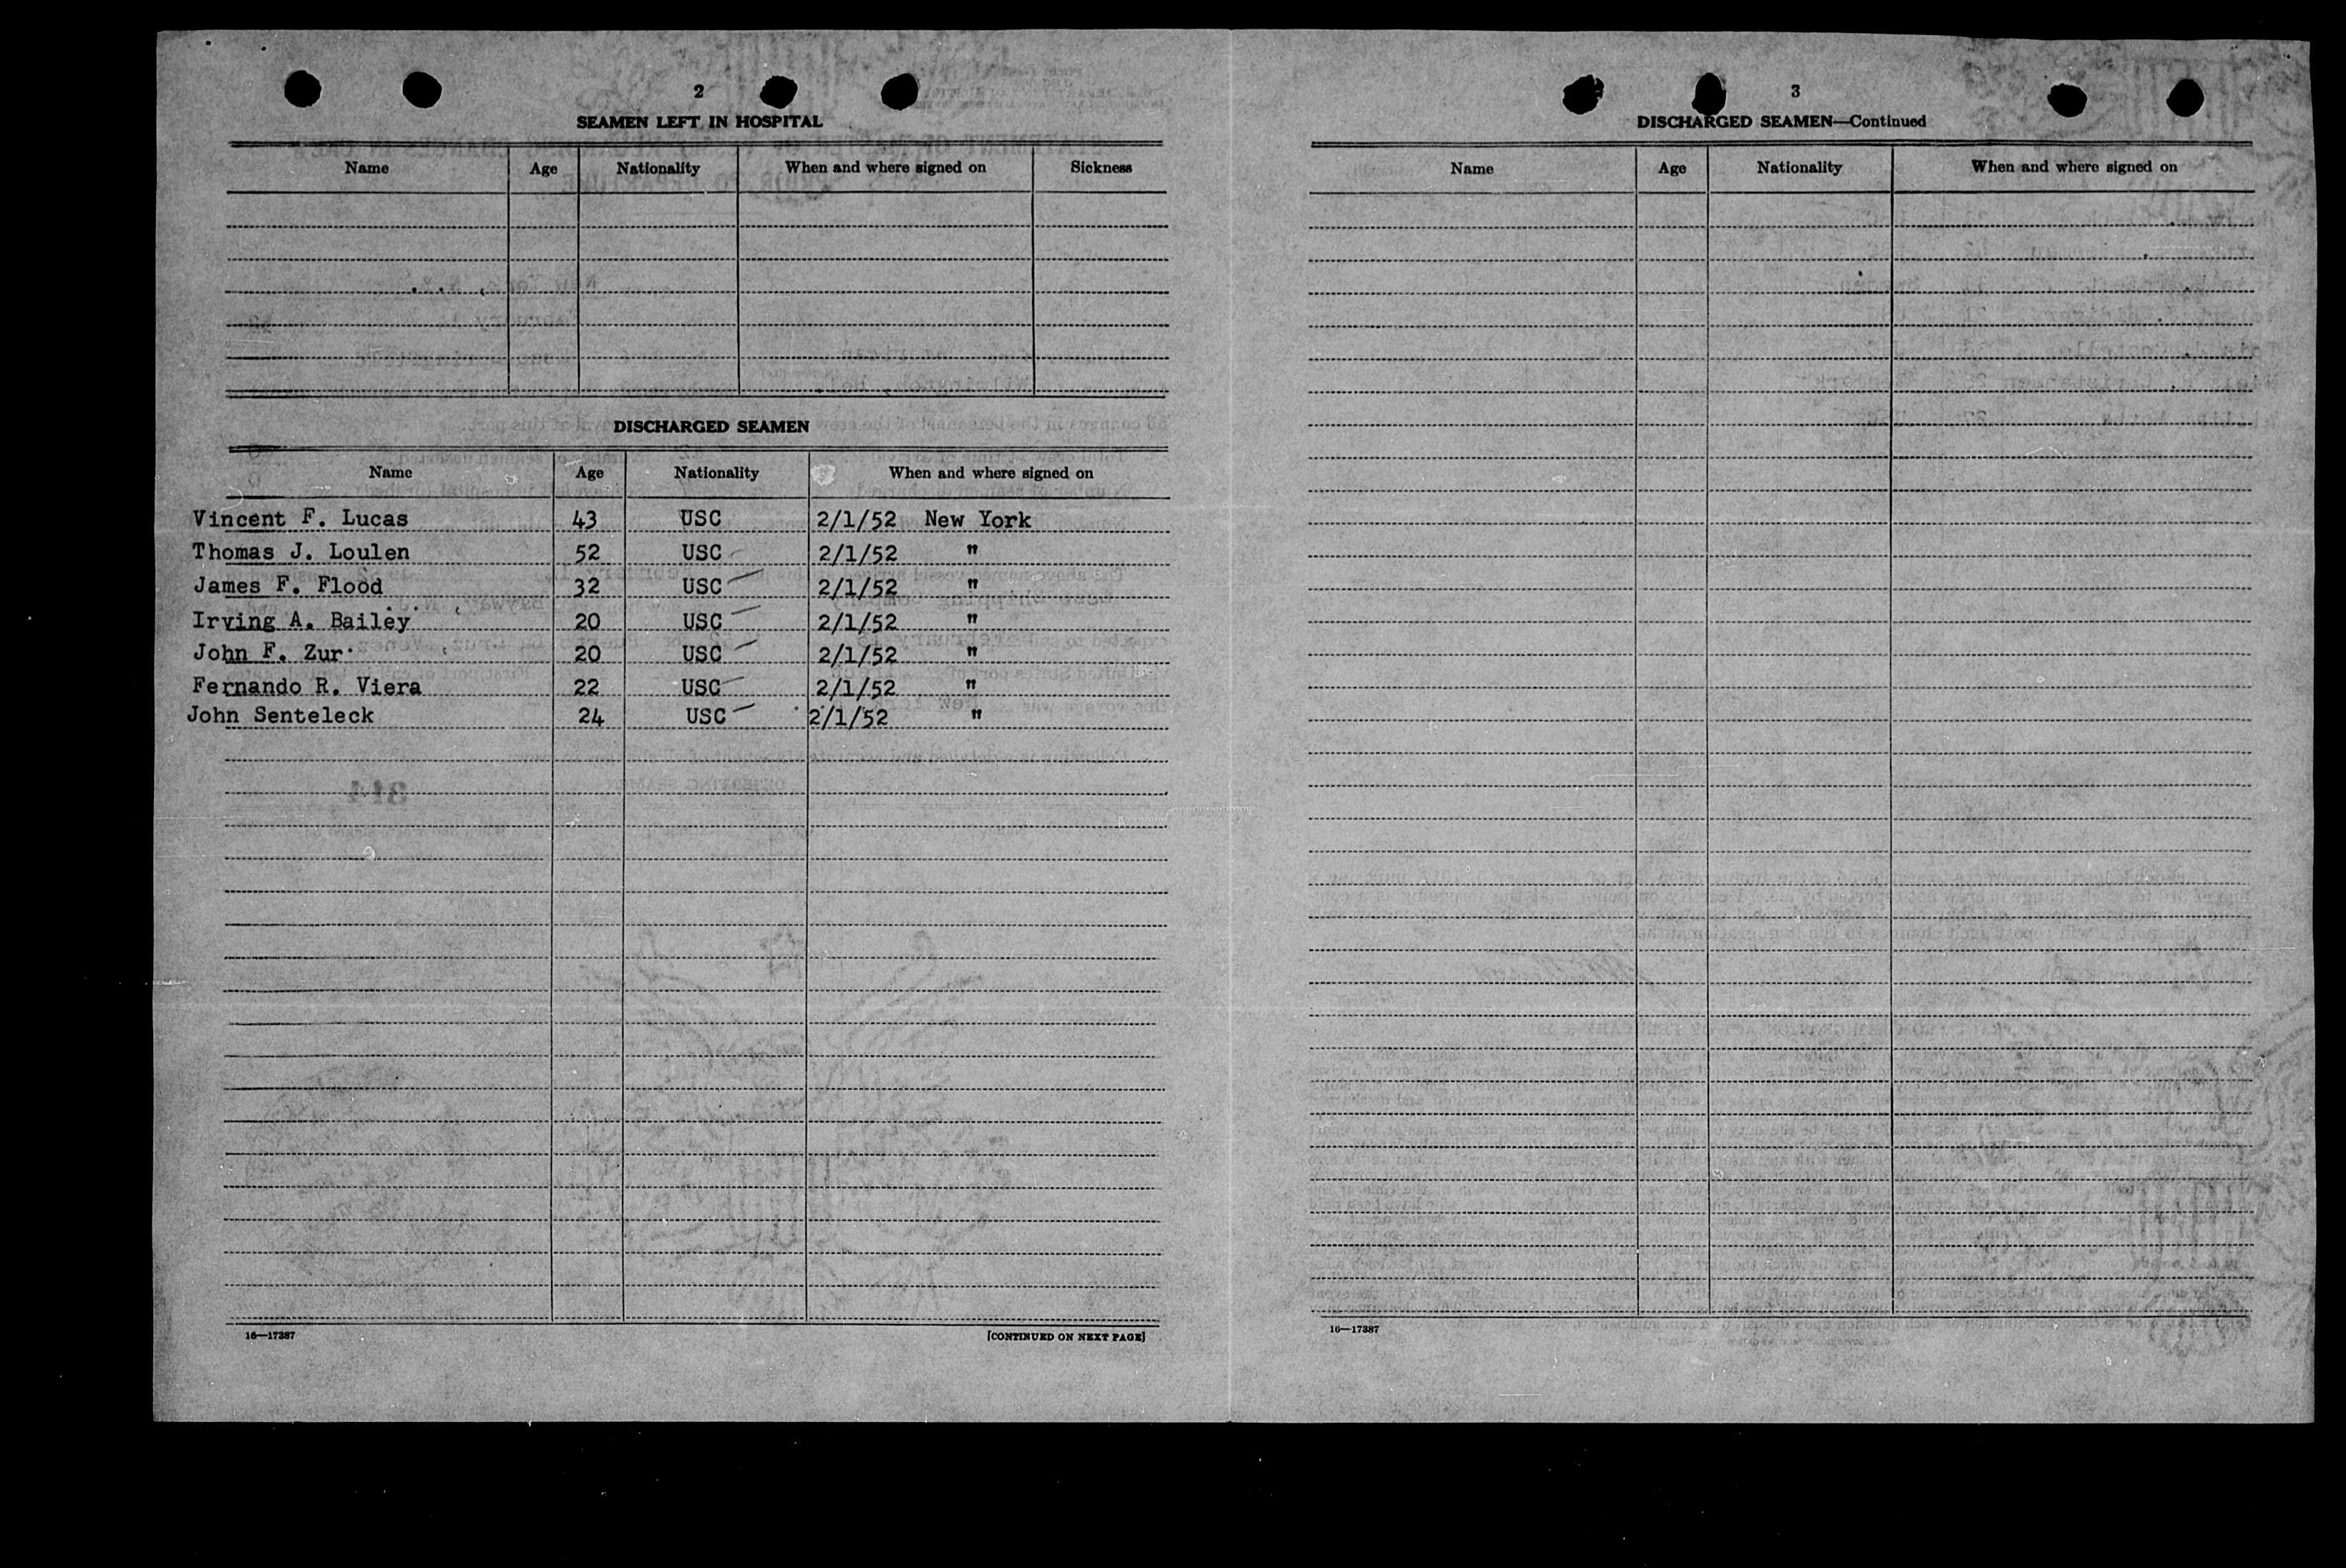 2
SEAMEN LEFT IN HOSPITAL
Name Age Nationality When and where signed on Sickness
DISCHARGED SEAMEN
Name Age Nationality When and where signed on
Vincent F. Lucas 43 USC 2/1/52 New York
Thomas J. Loulen 52 USC 2/1/52 "
James F. Flood 32 USC 2/1/52 "
Irving A. Bailey 20 USC 2/1/52 "
John F. Zur 20 USC 2/1/52 "
Fernando R. Viera 22 USC 2/1/52 "
John Senteleck 24 USC 2/1/52 "
16—17387 [CONTINUED ON NEXT PAGE]
3
DISCHARGED SEAMEN—Continued
Name Age Nationality When and where signed on
16—17387